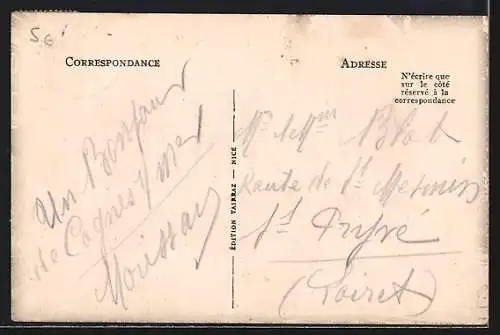 5€
CORRESPONDANCE
Un Bonjour
de Cagnes s/ mer
ADRESSE
N'écrire que
sur le côté
réservé à la
correspondance
Mr & Mme Blot
Route de St Mesmin
St
(Loiret)
ÉDITION TAIRRAZ — NICE